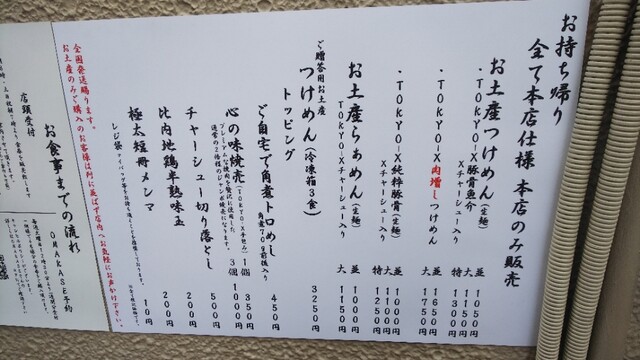 お持ち帰り
全て本店仕様 本店のみ販売
お土産つけめん(生麺)
・TOKYO-X豚骨魚介
Xチャーシュー入り
並 1050円
大 1150円
特大 1300円
・TOKYO-X肉増しつけめん
並 1650円
大 1750円
・TOKYO-X純粋豚骨(生麺)
Xチャーシュー入り
並 1000円
大 1100円
特大 1250円
お土産らぁめん(生麺)
TOKYO-Xチャーシュー入り
並 1000円
大 1150円
ご贈答用お土産
つけめん(冷凍箱3食)
3250円
トッピング
ご自宅で角煮トロめし
角煮70g前後入り
450円
心の味焼売(TOKYO-X手包み)
1個 350円
3個 1000円
チャーシュー切り落とし
500円
比内地鶏半熟味玉
200円
極太短冊メンマ
200円
レジ袋
10円
全国発送賜ります。
お土産のみご購入のお客様は列に並ばず店内へお気軽にお声がけ下さい。
お食事までの流れ
店頭受付
OMAKASE予約